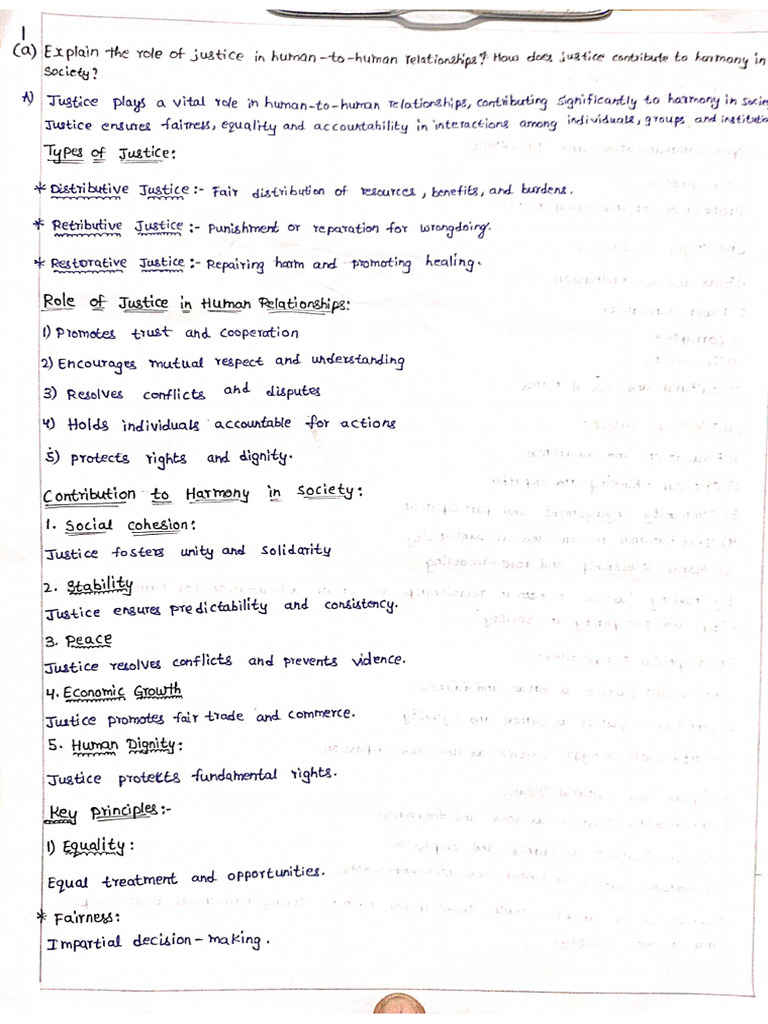 1
(a) Explain the role of justice in human-to-human relationships? How does justice contribute to harmony in
Society?
A) Justice plays a vital role in human-to-human relationships, contributing significantly to harmony in
Justice ensures fairness, equality and accountability in interactions among individuals, groups and
Types of Justice:
* Distributive Justice :- Fair distribution of resources, benefits, and burdens.
* Retributive Justice :- Punishment or reparation for wrongdoing.
* Restorative Justice :- Repairing harm and promoting healing.
Role of Justice in Human Relationships:
1) Promotes trust and cooperation
2) Encourages mutual respect and understanding
3) Resolves conflicts and disputes
4) Holds individuals accountable for actions
5) protects rights and dignity.
Contribution to Harmony in society:
1. Social cohesion:
Justice fosters unity and solidarity
2. Stability
Justice ensures predictability and consistency.
3. Peace
Justice resolves conflicts and prevents vidence.
4. Economic Growth
Justice promotes fair trade and commerce.
5. Human Dignity:
Justice protetts fundamental rights.
Key principles:-
1) Equality:
Equal treatment and opportunities.
* Fairness:
Impartial decision-making.